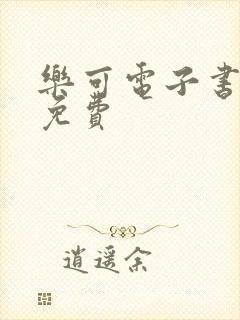 樂可電子書
免費
逍遥余